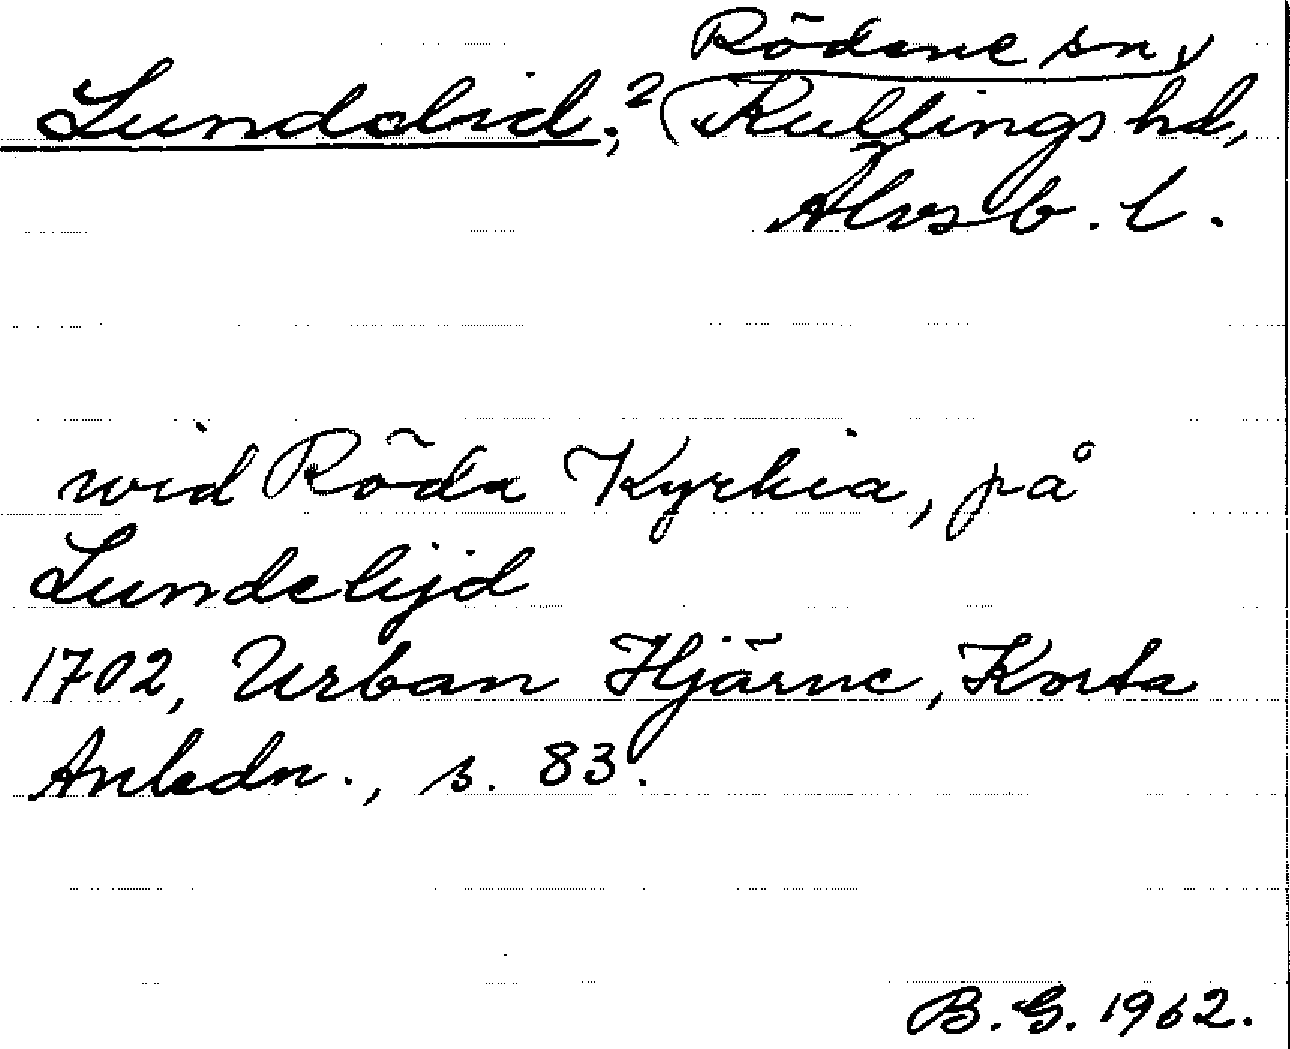 Rödene sn,
Lundelid, ? Kullings hd,
Älvsb. l.
wid Röda Kyrkia, på
Lundelijd
1702, Urban Hjärne, Korta
Anledn., s. 83.
B. G. 1962.